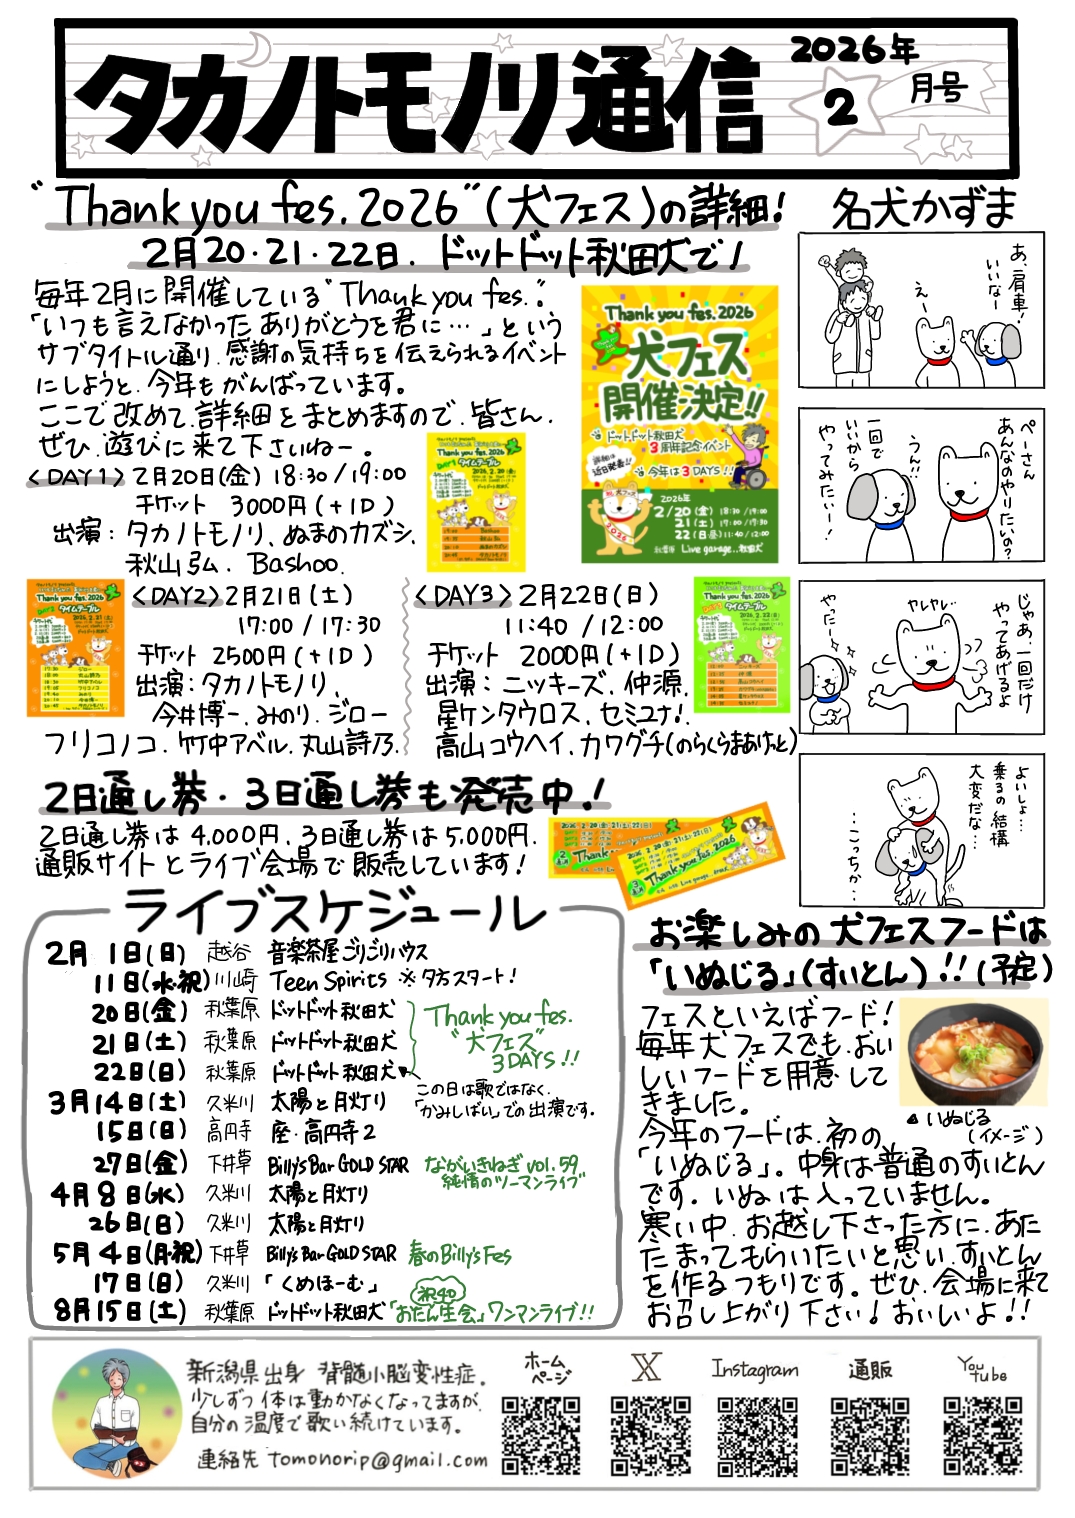 タカノトモノリ通信
2026年
2
月号
"Thank you fes.2026"(犬フェス)の詳細!
2月20・21・22日、ドットドット秋田犬で!
毎年2月に開催している"Thank you fes."。
「いつも言えなかったありがとうを君に…」という
サブタイトル通り、感謝の気持ちを伝えられるイベント
にしようと、今年もがんばっています。
ここで改めて、詳細をまとめますので、皆さん、
ぜひ、遊びに来て下さいねー。
<DAY1>2月20日(金) 18:30/19:00
チケット 3000円(+1D)
出演:タカノトモノリ、ぬまのカズシ、
秋山弘、Bashoo.
<DAY2>2月21日(土)
17:00/17:30
チケット 2500円(+1D)
出演:タカノトモノリ、
今井博一、みのり、ジロー
フリコノコ、竹中アベル、丸山詩乃、
<DAY3>2月22日(日)
11:40 /12:00
チケット 2000円(+1D)
出演:ニッキーズ、仲源、
星ケンタウロス、セミユナ!、
高山コウヘイ、カワグチ(のらくらまあけっと)
Thank you fes.2026
犬フェス
開催決定!!
ドットドット秋田犬
3周年記念イベント
詳細は
近日発表!!
今年は3DAYS!!
2026年
2/20(金) 18:30/19:00
21(土) 17:00/17:30
22(日) 11:40/12:00
秋葉原 Live garage..秋田犬
Thank you fes.2026
DAY1 タイムテーブル
Thank you fes.2026
DAY2 タイムテーブル
Thank you fes.2026
DAY3 タイムテーブル
2日通し券・3日通し券も発売中!
2日通し券は 4,000円、3日通し券は5,000円.
通販サイトとライブ会場で販売しています!
Thank you fes.2026
名犬かずま
あ、肩車!
いいなー
えー
ぺーさん
あんなのやりたいの?
うん!!
一回で
いいから
やってみたい!
じゃあ、一回だけ
やってあげるよ
ヤレヤレ…
やったー
よいしょ…
乗るの結構
大変だな…
…こっちか…
ライブスケジュール
2月 1日(日) 越谷 音楽茶屋ごりごりハウス
11日(水・祝) 川崎 Teen Spirits ※夕方スタート!
20日(金) 秋葉原 ドットドット秋田犬
21日(土) 秋葉原 ドットドット秋田犬
22日(日) 秋葉原 ドットドット秋田犬
Thank you fes.
"犬フェス"
3DAYS!!
この日は歌ではなく、
「かみしばい」での出演です。
3月14日(土) 久米川 太陽と月灯り
15日(日) 高円寺 座・高円寺2
27日(金) 下井草 Billy's Bar GOLD STAR ながいきねぎ vol.59
純情のツーマンライブ
4月8日(水) 久米川 太陽と月灯り
26日(日) 久米川 太陽と月灯り
5月4日(月・祝) 下井草 Billy's Bar GOLD STAR 春のBilly's Fes
17日(日) 久米川 「くめほーむ」
祝40
8月15日(土) 秋葉原 ドットドット秋田犬「おたん生会」ワンマンライブ!!
お楽しみの犬フェスフードは
「いぬじる」(すいとん)!!(予定)
フェスといえばフード!
毎年犬フェスでも、おい
しいフードを用意して
きました。
今年のフードは、初の、
「いぬじる」。中身は普通のすいとん
です。いぬは入っていません。
寒い中、お越し下さった方に、あた
たまってもらいたいと思い、すいとん
を作るつもりです。ぜひ、会場に来て
お召し上がり下さい!おいしいよ!!
いぬじる
(イメージ)
新潟県出身 脊髄小脳変性症。
少しずつ体は動かなくなってますが、
自分の温度で歌い続けています。
連絡先 tomonorip@gmail.com
ホーム
ページ
X
Instagram
通販
You
tube